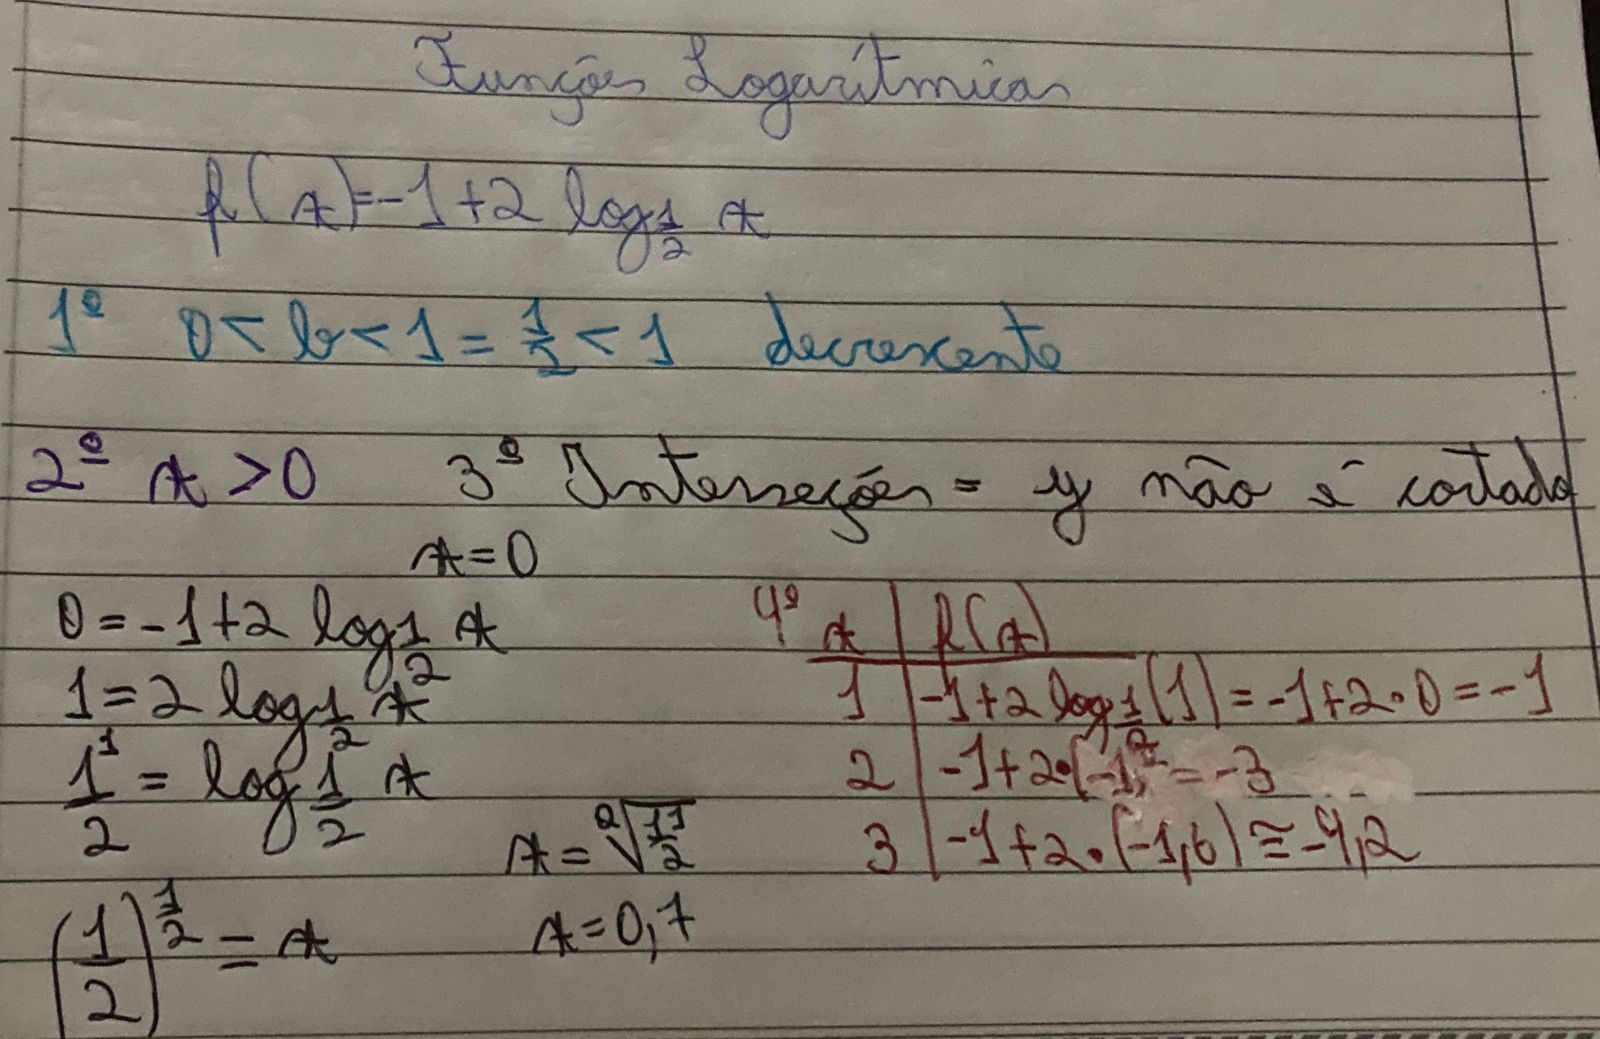 Funções Logarítmicas
f(x)=-1+2 log_{1/2} x
1º 0 < b < 1 = 1/2 < 1 decrescente
2º x > 0 3º Interseções = y não é cortado
x=0
0 = -1+2 log_{1/2} x
1 = 2 log_{1/2} x
1^1/2 = log_{1/2} x
(1/2)^{1/2} = x
x = ²√(1^1/2)
x = 0,7
4º x | f(x)
1 | -1+2 log_{1/2} (1) = -1+2·0 = -1
2 | -1+2·(-1) = -3
3 | -1+2·(-1,6) ≅ -4,2